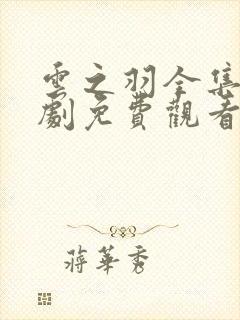 雲之羽全集
劇免費觀看
蔣華秀